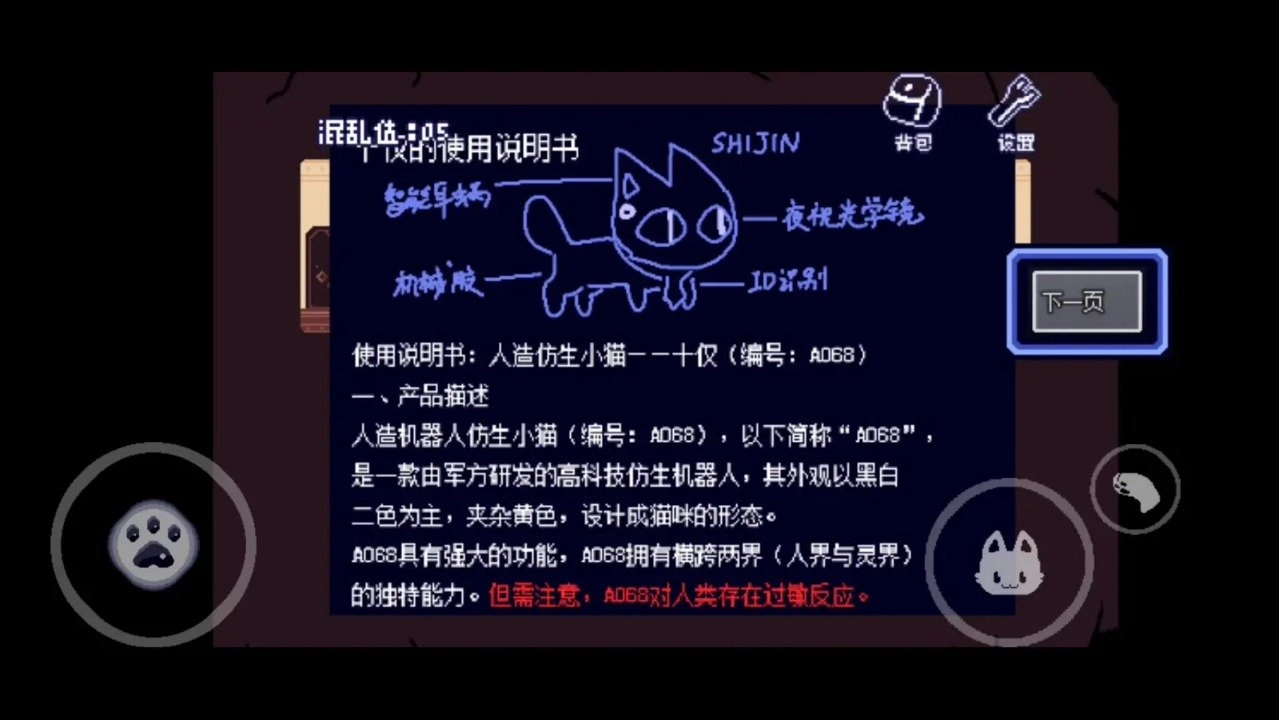 混乱值:05
十仪的使用说明书
SHIJIN
背包
设置
智能耳蜗
夜视光学镜
机械腿
ID识别
下一页
使用说明书：人造仿生小猫——十仪（编号：A068）
一、产品描述
人造机器人仿生小猫（编号：A068），以下简称“A068”，
是一款由军方研发的高科技仿生机器人，其外观以黑白
二色为主，夹杂黄色，设计成猫咪的形态。
A068具有强大的功能，A068拥有横跨两界（人界与灵界）
的独特能力。但需注意，A068对人类存在过敏反应。